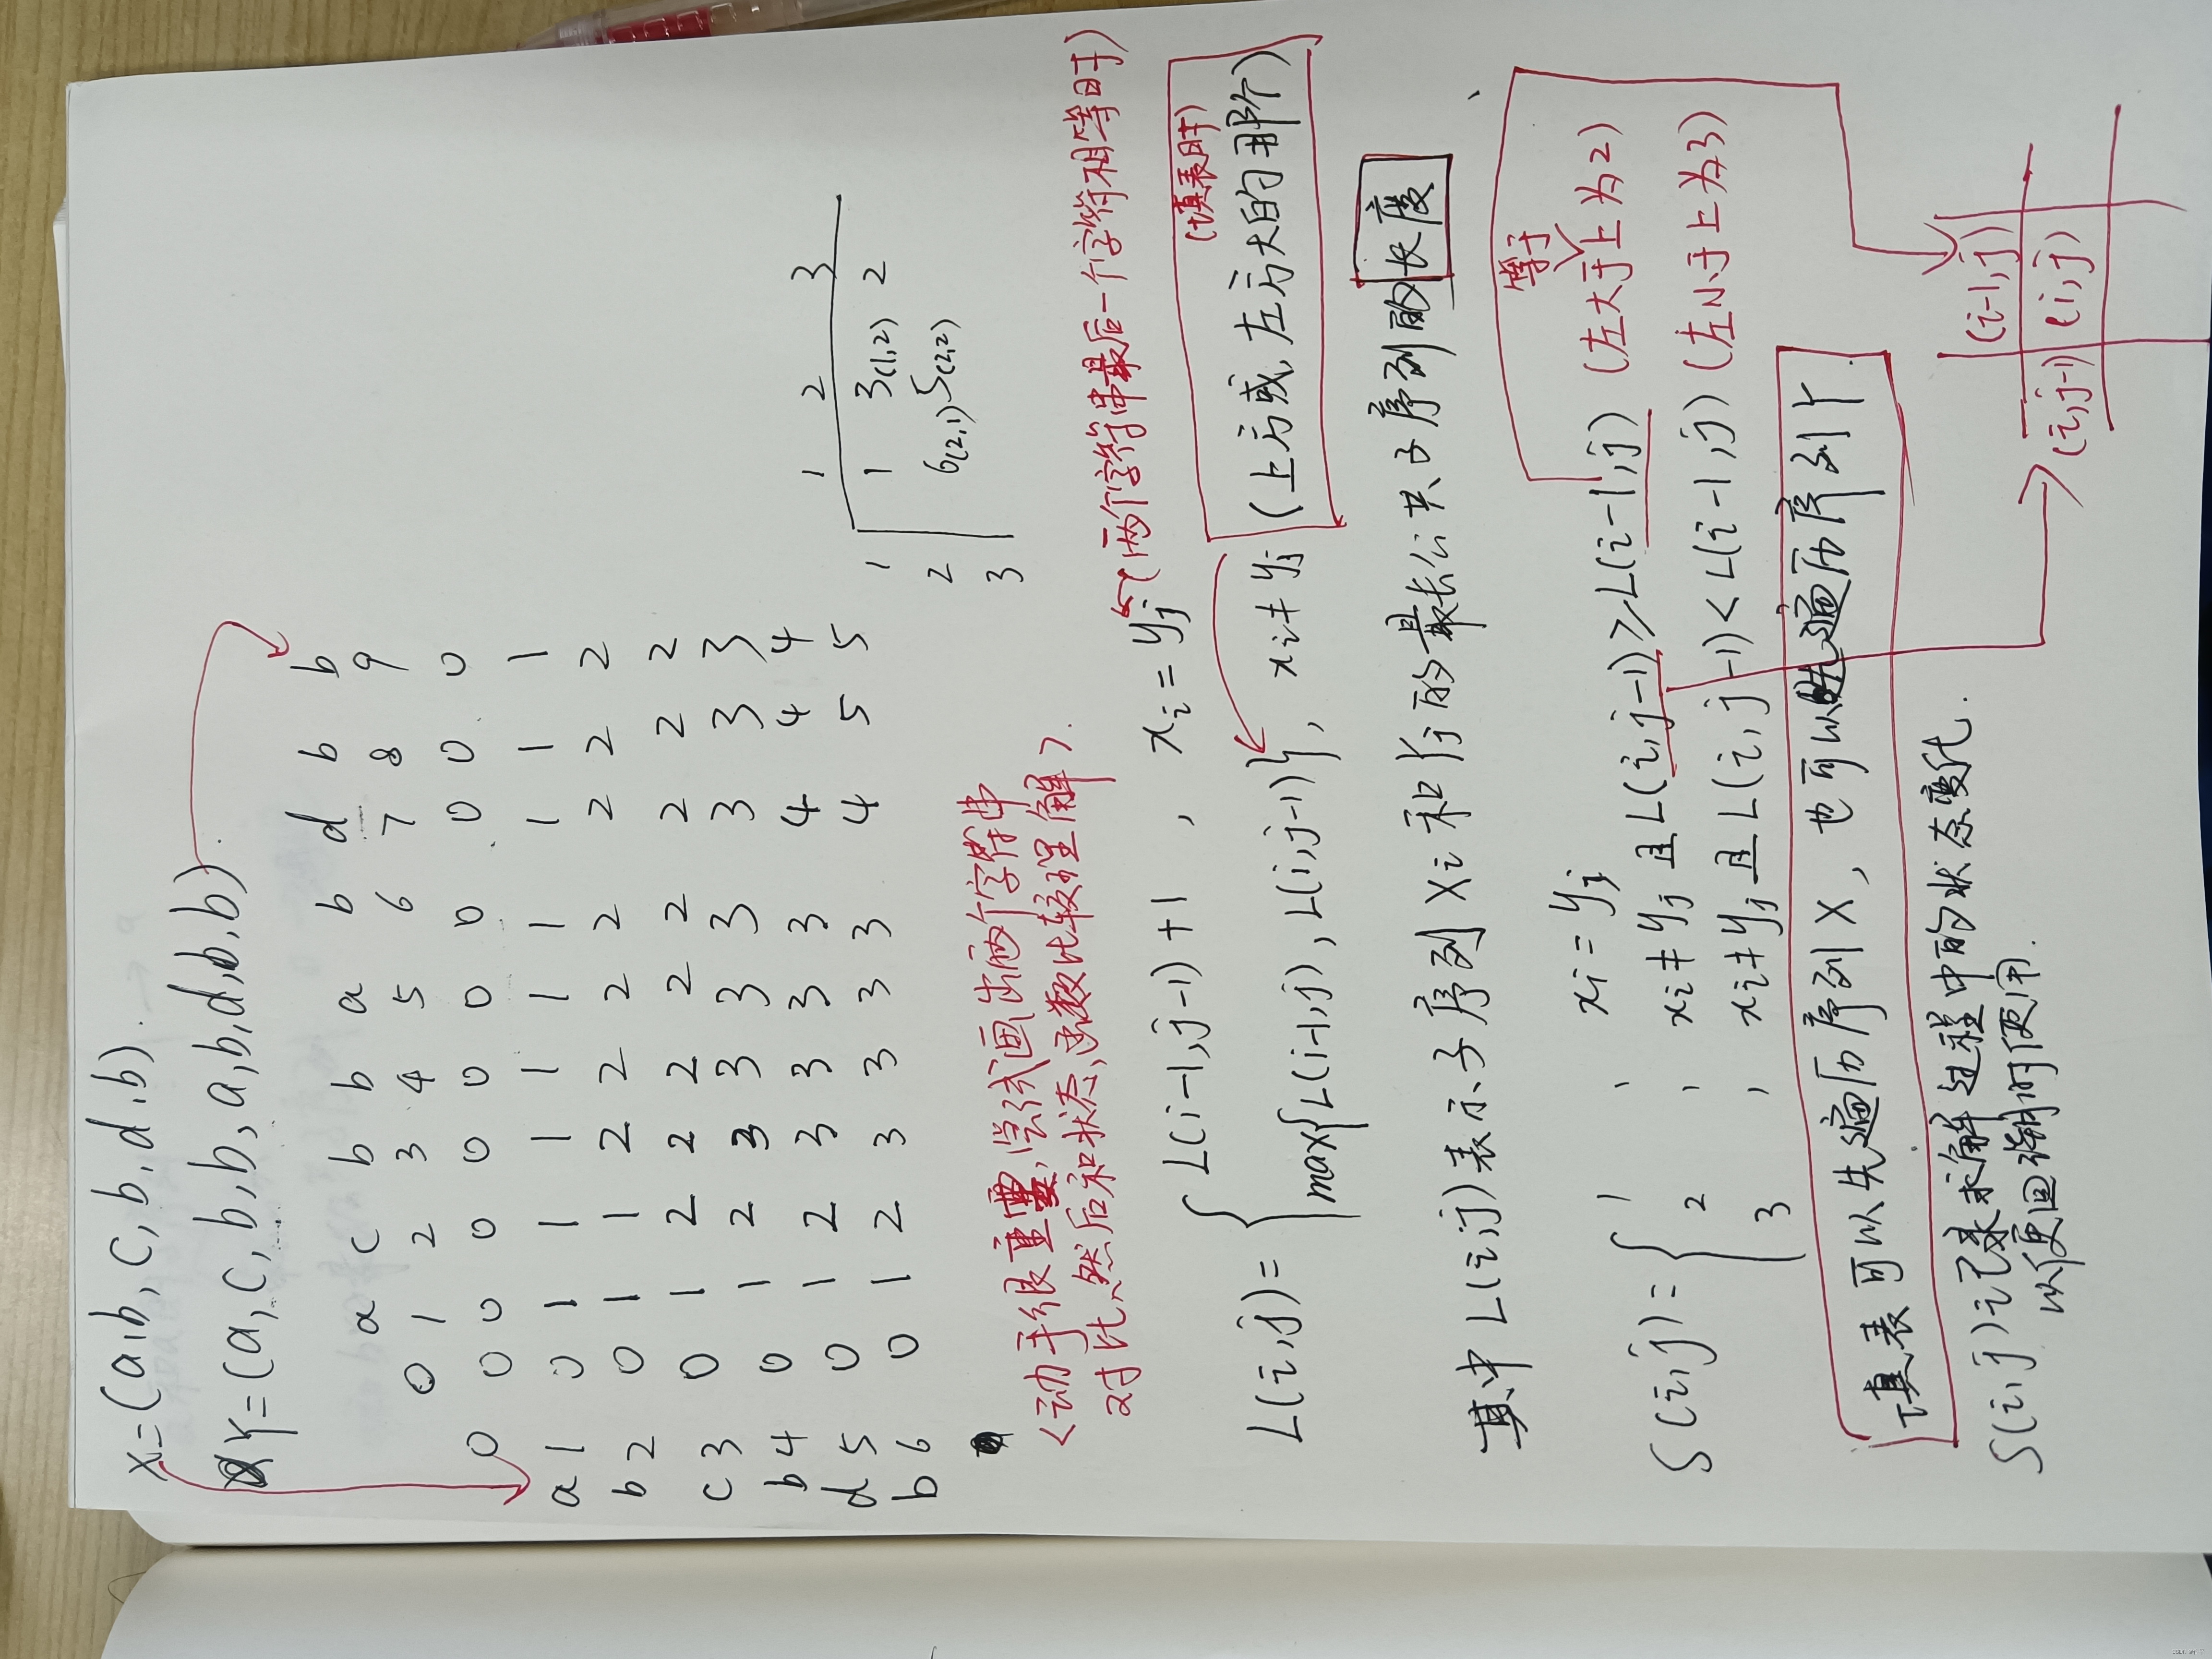 X=(a,b,c,b,d,b).
Y=(a,c,b,b,a,b,d,b,b).
a c b b a b d b b
0 1 2 3 4 5 6 7 8 9
0 0 0 0 0 0 0 0 0 0 0
a 1 0 1 1 1 1 1 1 1 1 1
b 2 0 1 1 2 2 2 2 2 2 2
c 3 0 1 2 2 2 2 2 2 2 2
b 4 0 1 2 3 3 3 3 3 3 3
d 5 0 1 2 3 3 3 3 4 4 4
b 6 0 1 2 3 3 3 3 4 5 5
1 2 3
1 1 3(1,2) 2
2 6(2,1) 5(2,2)
3
<动手很重要,尝试画出两个字符串
对比,然后和状态,函数比较理解>.
L(i,j)={ L(i-1,j-1)+1 , xi=yj (两个字符串最后一个字符相等时)
(填表时)
max{L(i-1,j),L(i,j-1)}, xi≠yj (上方或,左方大的那个)
其中L(i,j)表示子序列Xi和Yj的最长公共子序列的长度
S(i,j)={ 1 , xi=yj
等于
2 , xi≠yj且L(i,j-1)≥L(i-1,j) (左大于上为2)
3 , xi≠yj且L(i,j-1)<L(i-1,j) (左小于上为3)
填表可以先遍历序列X,也可以先遍历序列Y.
S(i,j)记录求解过程中的状态变化.
以便回溯时使用.
(i-1,j)
(i,j-1) (i,j)